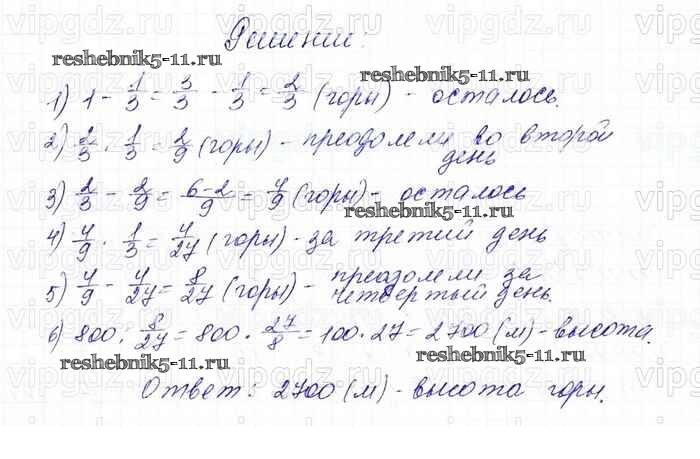 Решение:
reshebnik5-11.ru
1) 1 - 1/3 = 3/3 - 1/3 = 2/3 (горы) - осталось.
reshebnik5-11.ru
2) 2/3 · 1/3 = 2/9 (горы) - преодолели во второй
день
3) 2/3 - 2/9 = (6-2)/9 = 4/9 (горы) - осталось
reshebnik5-11.ru
4) 4/9 · 1/3 = 4/27 (горы) - за третий день
5) 4/9 - 4/27 = 8/27 (горы) - преодолели за
четвертый день.
6) 800 : 8/27 = 800 · 27/8 = 100 · 27 = 2700 (м) - высота.
reshebnik5-11.ru
reshebnik5-11.ru
Ответ: 2700 (м) - высота горы.
vipgdz.com